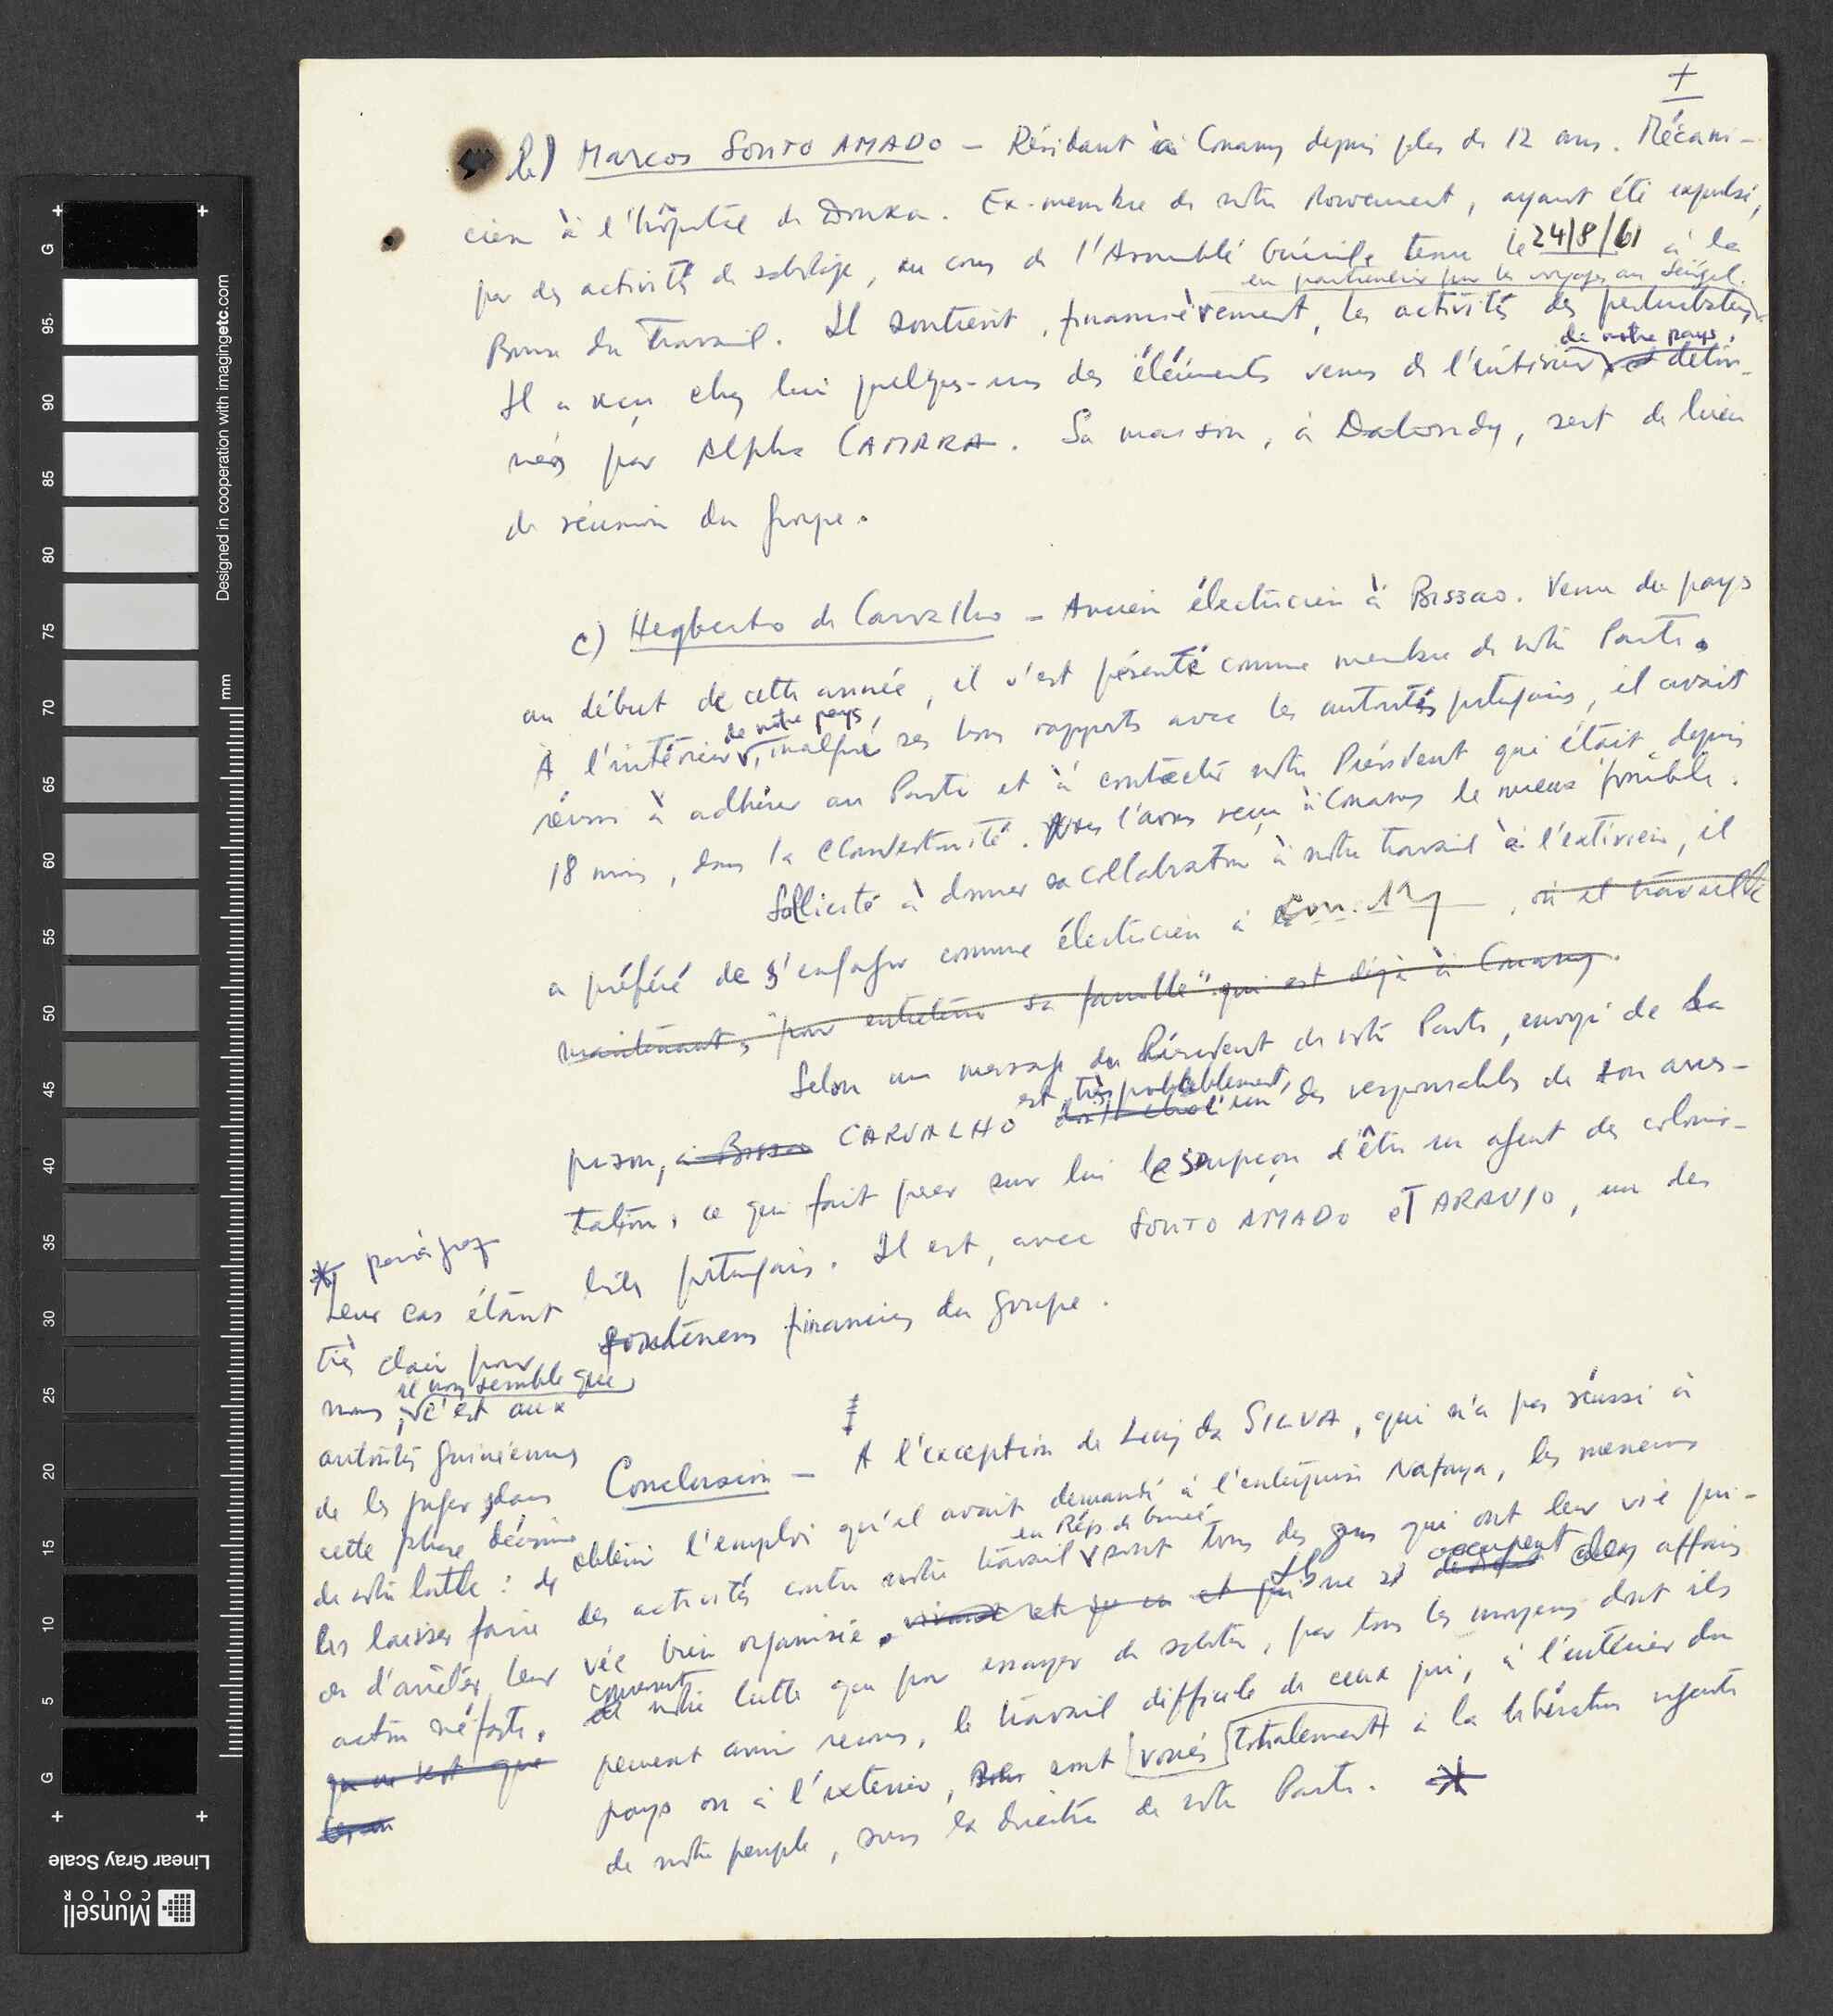 +
b) Marcos SOUTO AMADO – Résidant à Conakry depuis plus de 12 ans. Mécani-
cien à l'hôpital de Donka. Ex-membre de notre Mouvement, ayant été expulsé,
par des activités de sabotage, au cours de l'Assemblé Générale tenue le 24/8/61 à la
en particulier par les voyages au Sénégal.
Bourse du Travail. Il soutient, financièrement, les activités des perturbateurs.
de notre pays,
Il a reçu chez lui quelques-uns des éléments venus de l'intérieur et détour-
nés par Alpha CAMARA. Sa maison, à Dabondy, sert de lieu
de réunion du groupe.
c) Hegberto de Carvalho – Ancien électricien à Bissao. Venu du pays
au début de cette année, il s'est présenté comme membre de notre Parti.
de notre pays,
À l'intérieur, malgré ses bons rapports avec les autorités portugaises, il avait
réussi à adhérer au Parti et à contacter notre Président qui était, depuis
18 mois, dans la clandestinité. Nous l'avons reçu à Conakry le mieux possible.
Sollicité à donner sa collaboration à notre travail à l'extérieur, il
a préféré de s'engager comme électricien à , où et travaille
maintenant, "pour entretenir sa famille" qui est déjà à Conakry.
Selon un message du Président de notre Parti, envoyé de la
est très probablement
prison, à Bissao CARVALHO l'un des responsables de son arres-
tation, ce qui fait peser sur lui le soupçon d'être un agent des colonia-
listes portugais. Il est, avec SOUTO AMADO et ARAUJO, un des
souteneurs financiers du groupe.
Conclusion – A l'exception de Luiz da SILVA, qui n'a pas réussi à
obtenir l'emploi qu'il avait demandé à l'entreprise Nafaya, les meneurs
en Rép. de Guinée
des activités contre notre travail sont tous des gens qui ont leur vie pri-
vée bien organisée. et qui Ils ne s' occupent des affaires
concernant
notre lutte que pour essayer de saboter, par tous les moyens dont ils
peuvent avoir recours, le travail difficile de ceux qui, à l'intérieur du
pays ou à l'extérieur, sont voués totalement à la libération urgente
de notre peuple, sous la direction de notre Parti. *
*
Leur cas étant
très clair pour
il nous semble que
nous, c'est aux
autorités guinéennes
de les juger dans
cette phase décisive
de notre lutte : de
les laisser faire
ou d'arrêter leur
action néfaste.
G
95
90
85
80
75
70
65
60
55
50
45
40
35
30
25
20
15
10
5
G
mm
Designed in cooperation with imagingetc.com
Linear Gray Scale
Munsell
COLOR